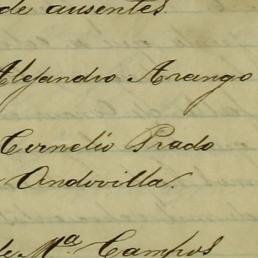 de ausentes.
Alejandro Arango
Cornelio Prado
Andovilla.
de Mª Campos